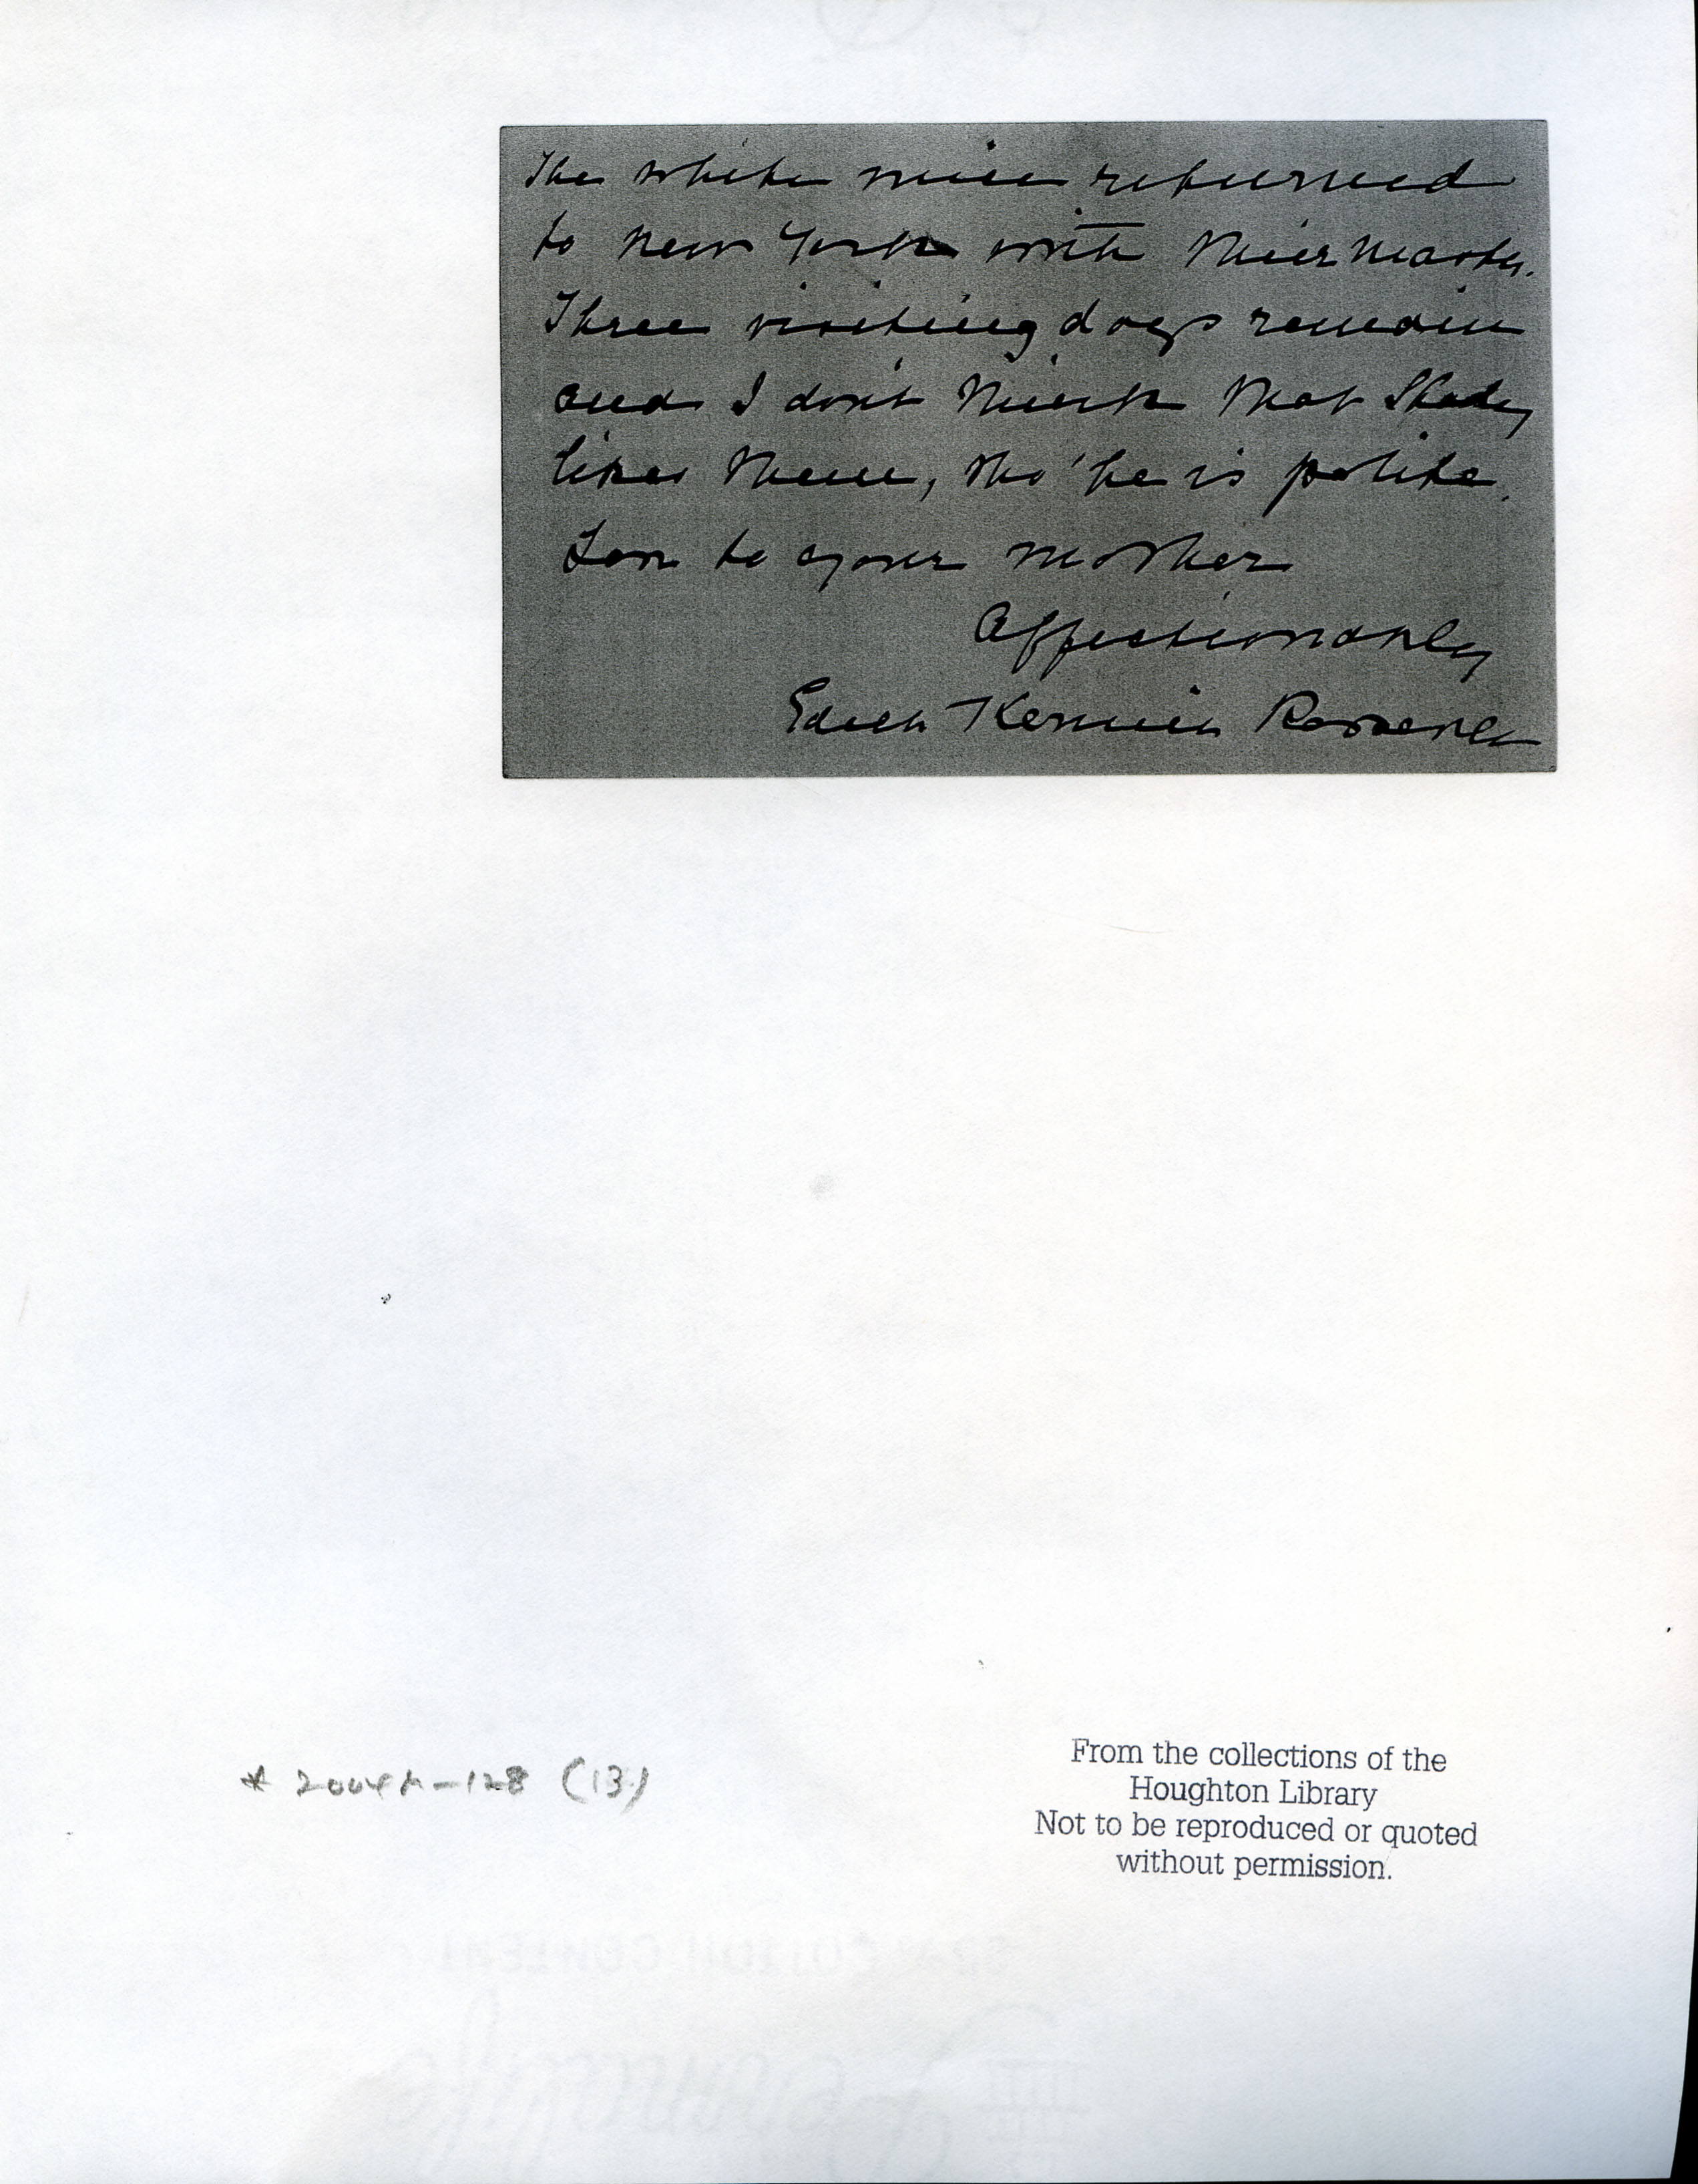 The white mice returned
to New York with their master.
Three visiting dogs remain
and I don't think that Shady
likes them, tho' he is polite.
Love to your mother
Affectionately
Edith Kermit Roosevelt
* 2004M-128 (13)
From the collections of the
Houghton Library
Not to be reproduced or quoted
without permission.